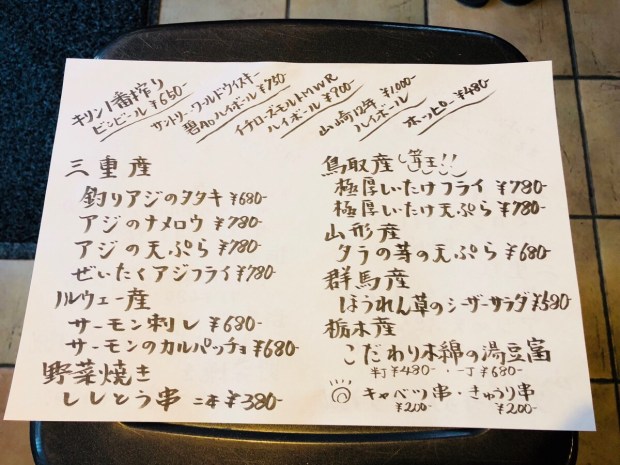 キリン一番搾り
ビンビール ¥650-
サントリーワールドウイスキー
碧Aoハイボール ¥750-
イチローズモルトMWR
ハイボール ¥900-
山崎12年 ¥1,000-
ハイボール
ホッピー ¥480-
三重産
釣りアジのタタキ ¥680-
アジのナメロウ ¥780-
アジの天ぷら ¥780-
ぜいたくアジフライ ¥780-
ノルウェー産
サーモン刺し ¥680-
サーモンのカルパッチョ ¥680-
野菜焼き
ししとう串 二本 ¥380-
鳥取産
極厚しいたけフライ ¥780-
極厚しいたけ天ぷら ¥780-
山形産
タラの芽の天ぷら ¥680-
群馬産
ほうれん草のシーザーサラダ ¥580-
栃木産
こだわり木綿の湯豆富
半丁 ¥480-・一丁 ¥680-
キャベツ串・きゅうり串
¥200- ¥200-